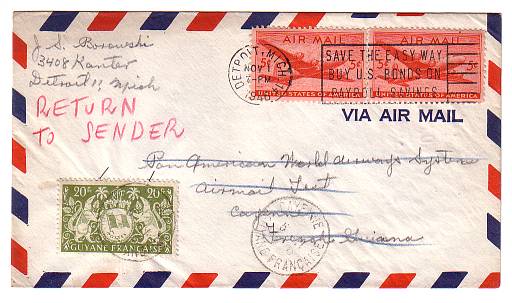 J. S. Borowski
3408 Kanter
Detroit 11, Mich
RETURN
TO SENDER
AIR MAIL AIR MAIL
5c 5c 5c
UNITED STATES OF AMERICA
DETROIT, MICH.
NOV
PM
SAVE THE EASY WAY
BUY U.S. BONDS ON
PAYROLL SAVINGS
VIA AIR MAIL
Pan American World Airways System
Airmail Test
Cayenne
French Guiana
20c 20c
GUYANE FRANÇAISE
CAYENNE
GUYANE FRANÇAISE